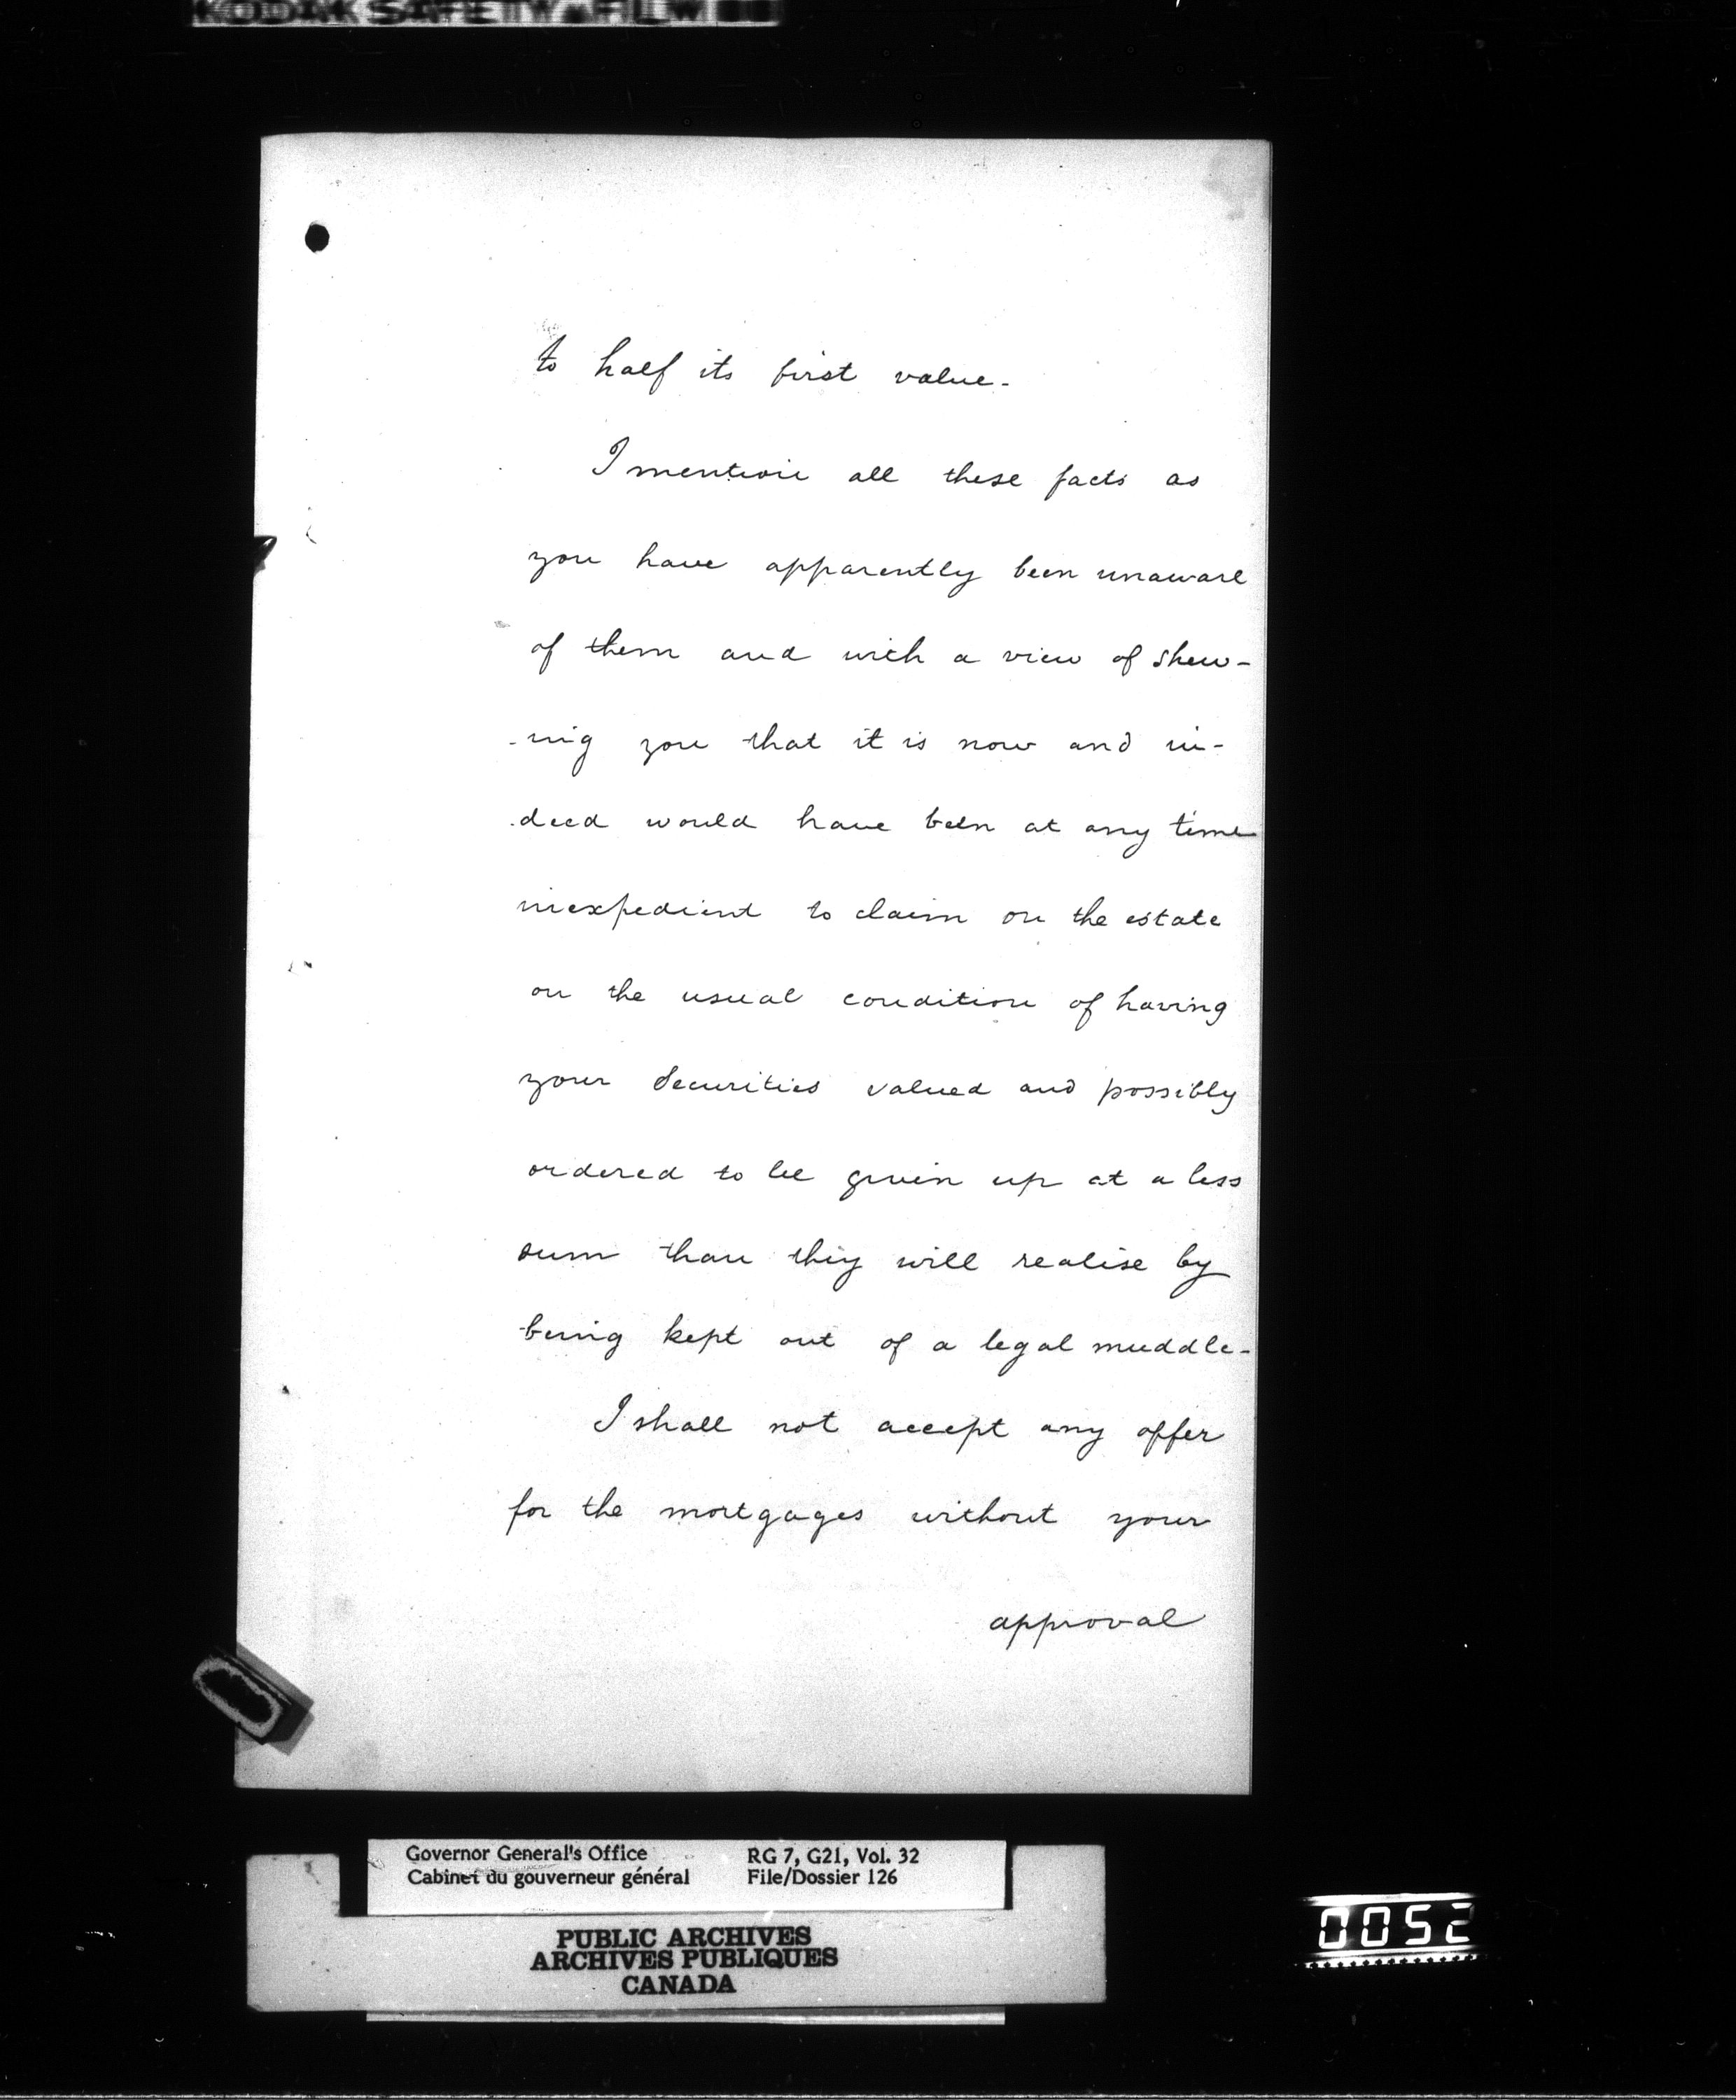 KODAK SAFETY FILM
to half its first value.
I mention all these facts as
you have apparently been unaware
of them and with a view of shew-
-ing you that it is now and in-
deed would have been at any time
inexpedient to claim on the estate
on the usual condition of having
your Securities valued and possibly
ordered to be given up at a less
sum than they will realise by
being kept out of a legal muddle.
I shall not accept any offer
for the mortgages without your
approval
Governor General's Office RG 7, G21, Vol. 32
Cabinet du gouverneur général File/Dossier 126
PUBLIC ARCHIVES
ARCHIVES PUBLIQUES
CANADA
0052